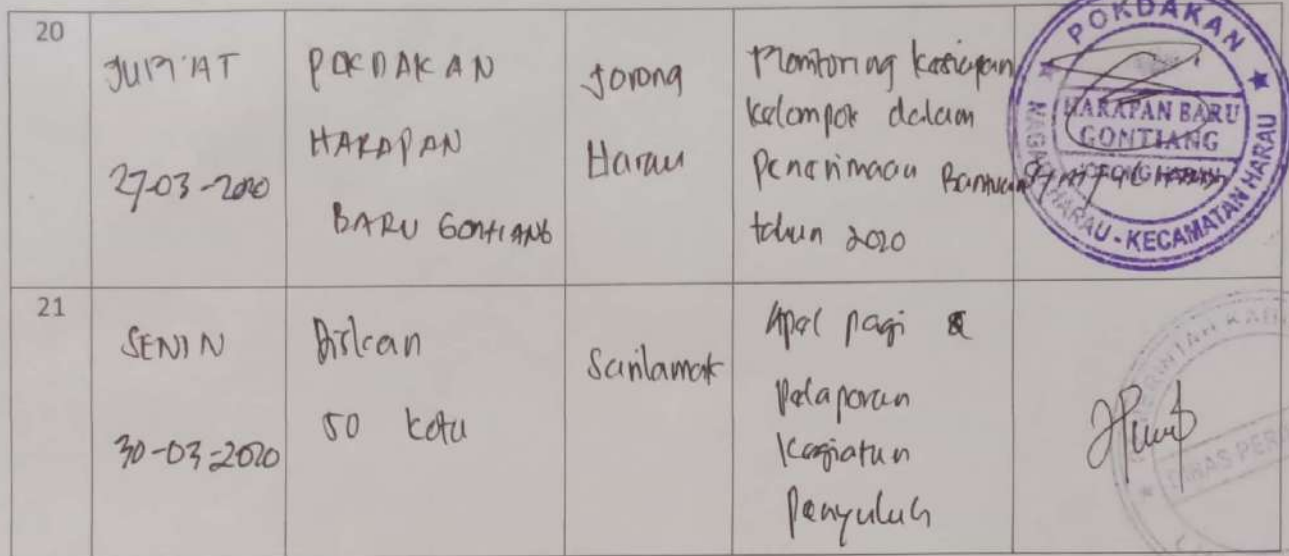 20
JUM'AT
27-03-2020
POKDAKAN
HARAPAN
BARU GONTIANG
Jorong
Harau
Monitoring kesiapan
kelompok dalam
Penerimaan Bantuan
tahun 2020
POKDAKAN
HARAPAN BARU
GONTIANG
JORONG HARAU
NAGARI HARAU - KECAMATAN HARAU
21
SENIN
30-03-2020
Diskan
50 kota
Sarilamak
Apel pagi &
Pelaporan
Kegiatan
Penyuluh
PEMERINTAH KAB
DINAS PER